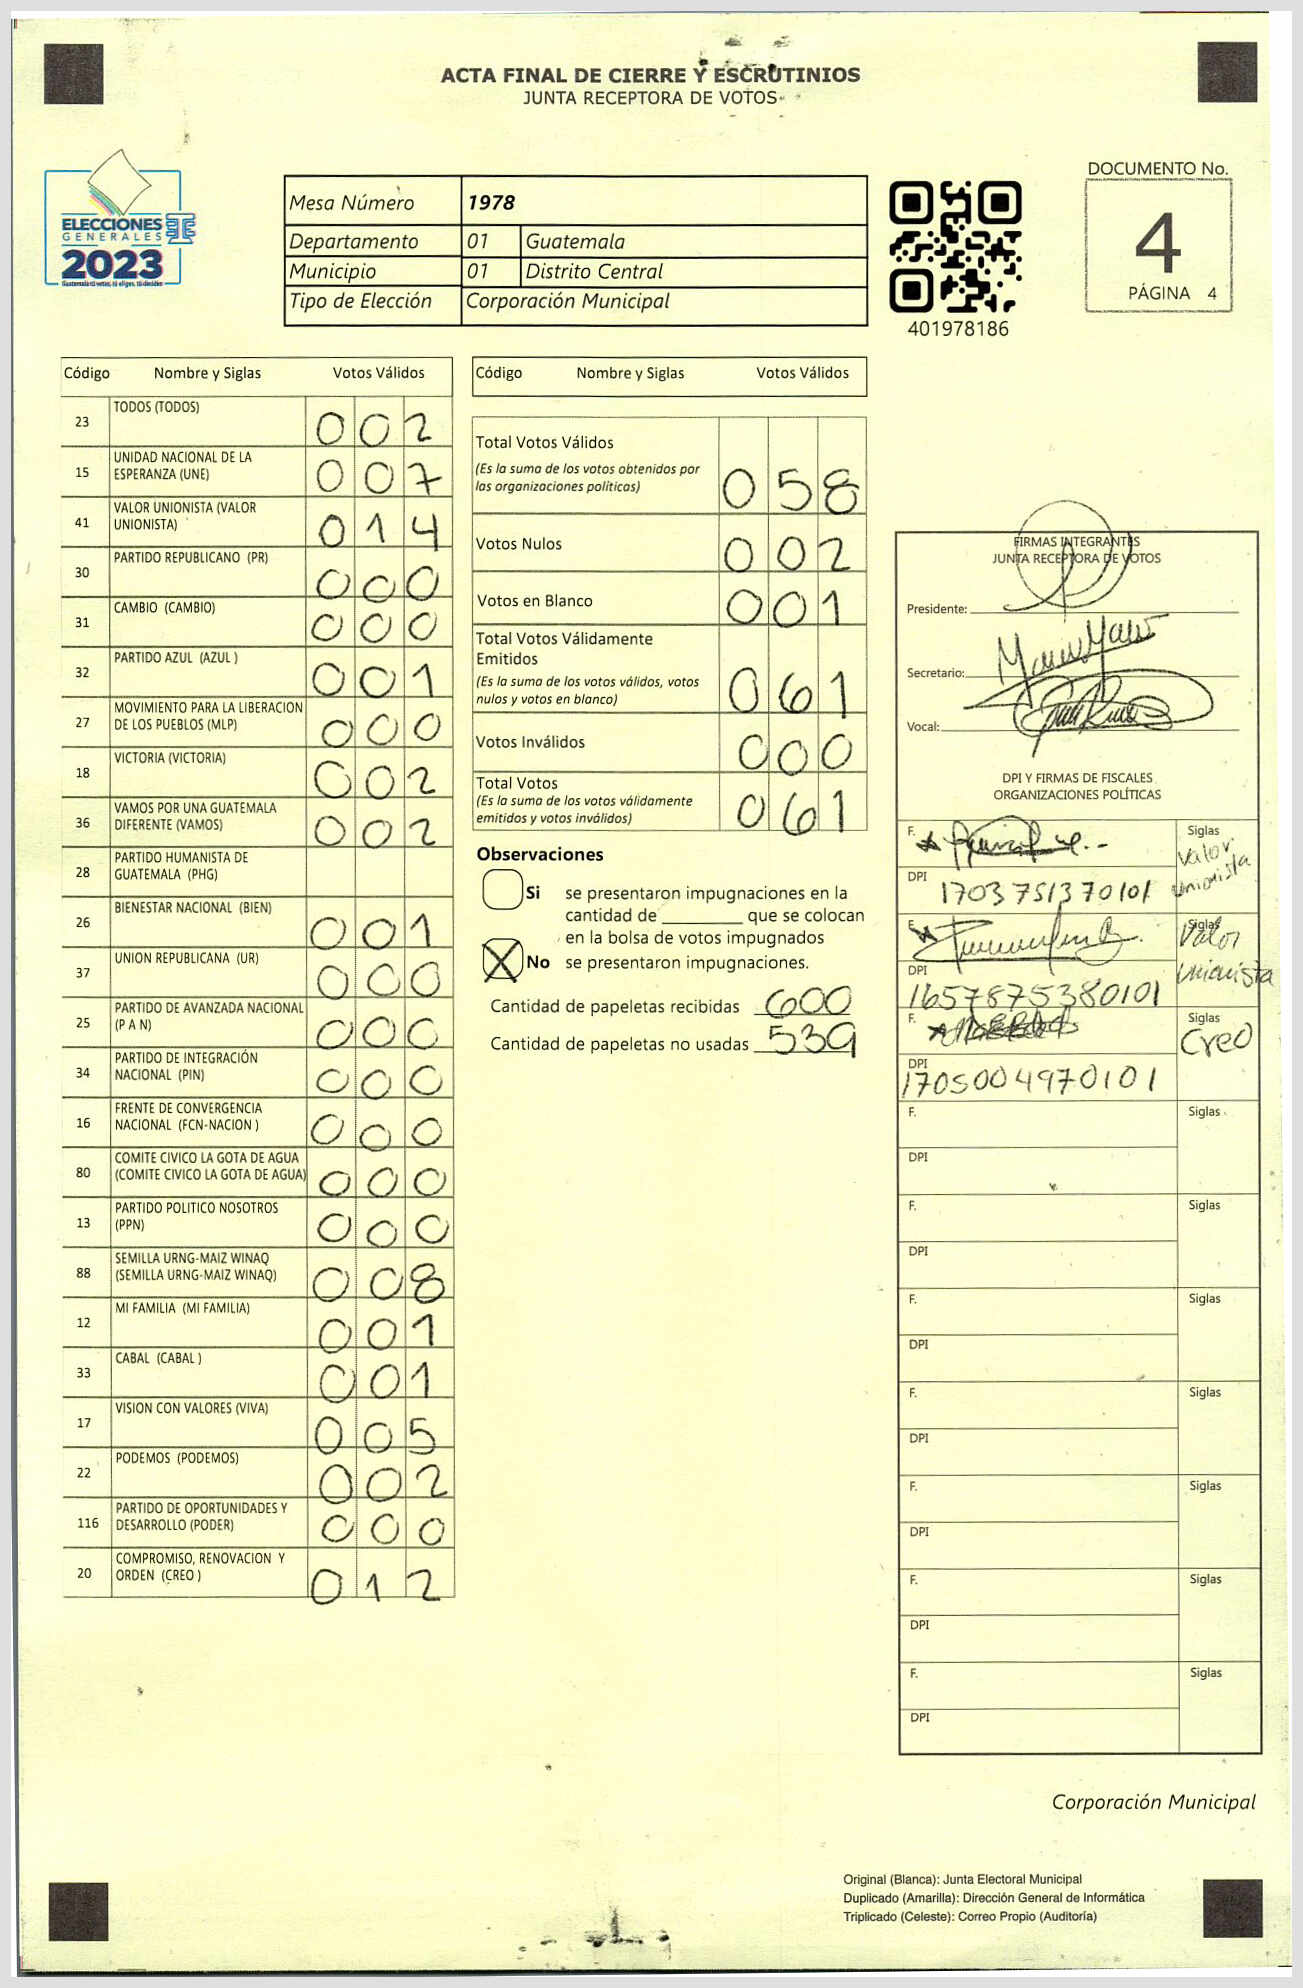 ACTA FINAL DE CIERRE Y ESCRUTINIOS
JUNTA RECEPTORA DE VOTOS
ELECCIONES
GENERALES
2023
Mesa Número 1978
Departamento 01 Guatemala
Municipio 01 Distrito Central
Tipo de Elección Corporación Municipal
401978186
DOCUMENTO No.
4
PÁGINA 4
Código Nombre y Siglas Votos Válidos
23 TODOS (TODOS) 002
15 UNIDAD NACIONAL DE LA
ESPERANZA (UNE) 007
41 VALOR UNIONISTA (VALOR
UNIONISTA) 014
30 PARTIDO REPUBLICANO (PR) 000
31 CAMBIO (CAMBIO) 000
32 PARTIDO AZUL (AZUL ) 001
27 MOVIMIENTO PARA LA LIBERACION
DE LOS PUEBLOS (MLP) 000
18 VICTORIA (VICTORIA) 002
36 VAMOS POR UNA GUATEMALA
DIFERENTE (VAMOS) 002
28 PARTIDO HUMANISTA DE
GUATEMALA (PHG)
26 BIENESTAR NACIONAL (BIEN) 001
37 UNION REPUBLICANA (UR) 000
25 PARTIDO DE AVANZADA NACIONAL
(P A N) 000
34 PARTIDO DE INTEGRACIÓN
NACIONAL (PIN) 000
16 FRENTE DE CONVERGENCIA
NACIONAL (FCN-NACION ) 000
80 COMITE CIVICO LA GOTA DE AGUA
(COMITE CIVICO LA GOTA DE AGUA) 000
13 PARTIDO POLITICO NOSOTROS
(PPN) 000
88 SEMILLA URNG-MAIZ WINAQ
(SEMILLA URNG-MAIZ WINAQ) 008
12 MI FAMILIA (MI FAMILIA) 001
33 CABAL (CABAL ) 001
17 VISION CON VALORES (VIVA) 005
22 PODEMOS (PODEMOS) 002
116 PARTIDO DE OPORTUNIDADES Y
DESARROLLO (PODER) 000
20 COMPROMISO, RENOVACION Y
ORDEN (CREO ) 012
Código Nombre y Siglas Votos Válidos
Total Votos Válidos
(Es la suma de los votos obtenidos por
las organizaciones políticas) 058
Votos Nulos 002
Votos en Blanco 001
Total Votos Válidamente
Emitidos
(Es la suma de los votos válidos, votos
nulos y votos en blanco) 061
Votos Inválidos 000
Total Votos
(Es la suma de los votos válidamente
emitidos y votos inválidos) 061
Observaciones
Si se presentaron impugnaciones en la
cantidad de ________ que se colocan
en la bolsa de votos impugnados
X No se presentaron impugnaciones.
Cantidad de papeletas recibidas 600
Cantidad de papeletas no usadas 539
FIRMAS INTEGRANTES
JUNTA RECEPTORA DE VOTOS
Presidente:
Secretario:
Vocal:
DPI Y FIRMAS DE FISCALES
ORGANIZACIONES POLÍTICAS
F. Siglas
Valor
unionista
DPI 1703751370101
F. Siglas
Valor
unionista
DPI
1657875380101
F. Siglas
Creo
DPI
1705004970101
F. Siglas
DPI
F. Siglas
DPI
F. Siglas
DPI
F. Siglas
DPI
F. Siglas
DPI
F. Siglas
DPI
F. Siglas
DPI
Corporación Municipal
Original (Blanca): Junta Electoral Municipal
Duplicado (Amarilla): Dirección General de Informática
Triplicado (Celeste): Correo Propio (Auditoría)